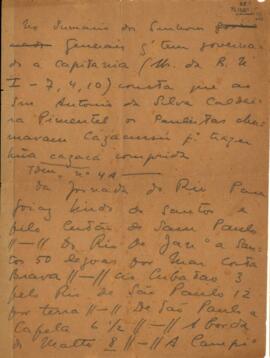 No Summario dos Senhores
Generaes q' tem governa-
do a capitania (Ms. da B. N
I - 7, 4, 10) consta que ao
Snr Antonio da Silva Caldei-
ra Pimentel os Paulistas cha-
mavam Casacuassú p.a trazer
uma casaca comprida
Idem nº 4A
Da Jornada do Rio Para
Goiaz hindo de Santos e
pelo Certão de Sam Paulo
—||—||— Do Rio de Jan.o a San-
tos 50 legoas por mar costa
Brava ||—||— Ao Cubatão 3
pelo Rio de São Paulo 12
por terra ||—||— De São Paulo a
Capela 6 1/2 ||—||— A borda
do Matto 8 ||—||— A Campi